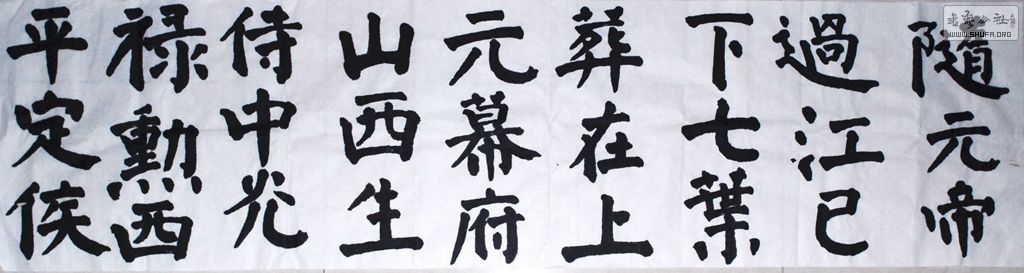 隨元帝
過江已
下七葉
葬在上
元幕府
山西生
侍中光
祿勳西
平定侯
书法公社
WWW.SHUFA.ORG